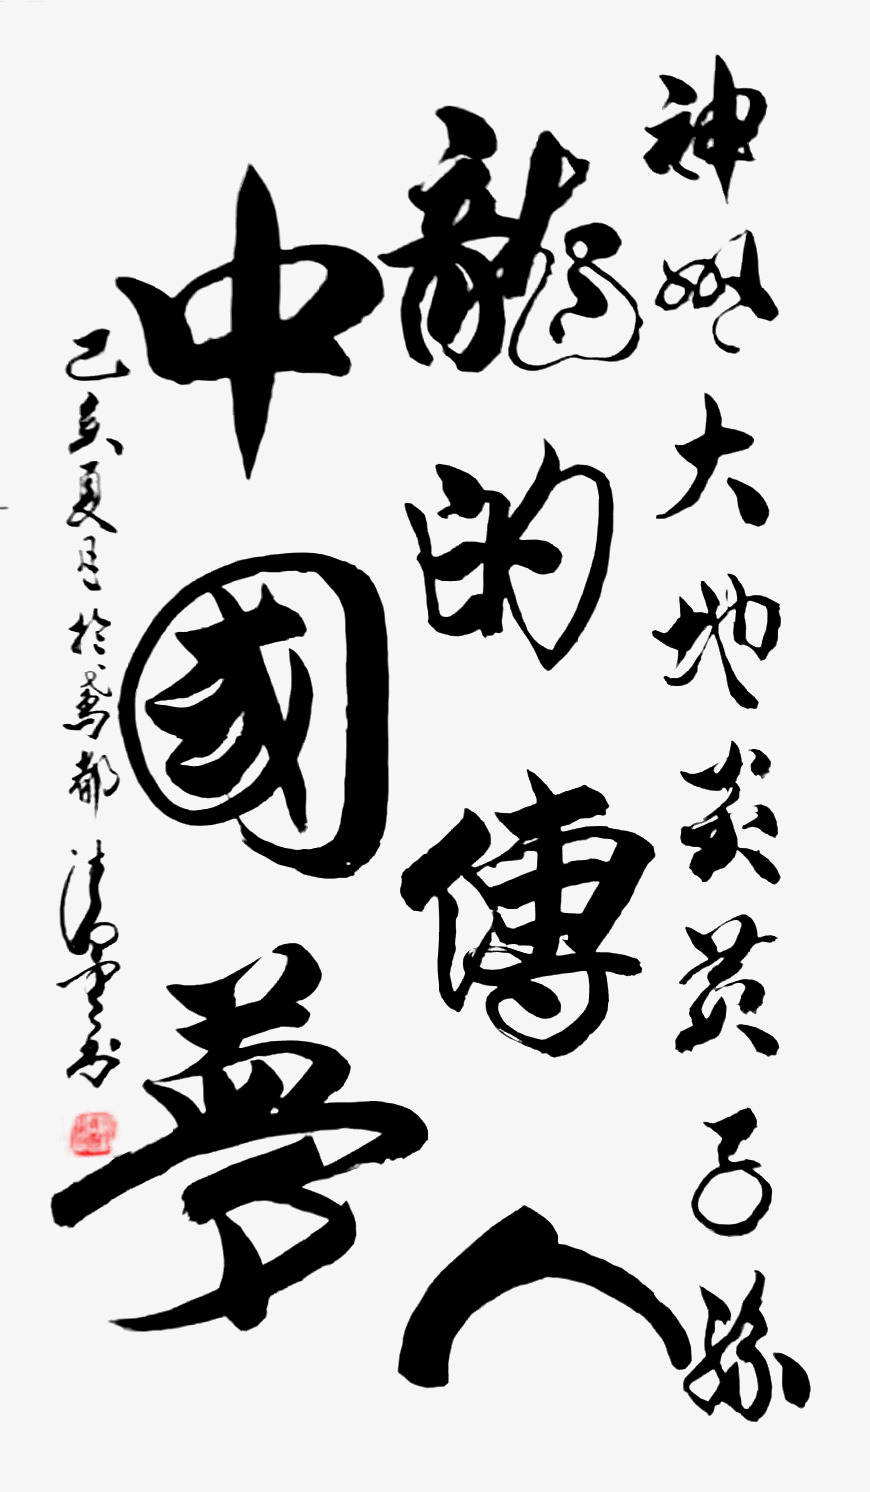 神州大地炎黄子孫
龍的傳人
中國夢
己亥夏月於鳶都清墨书